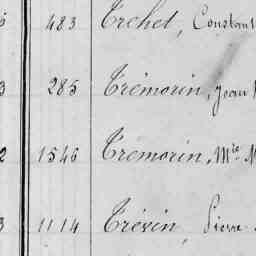 483 Trehet, Constant
3 285 Trémorin, Jean
2 1546 Trémorin, Mie M
3 1114 Trévin, Pierre